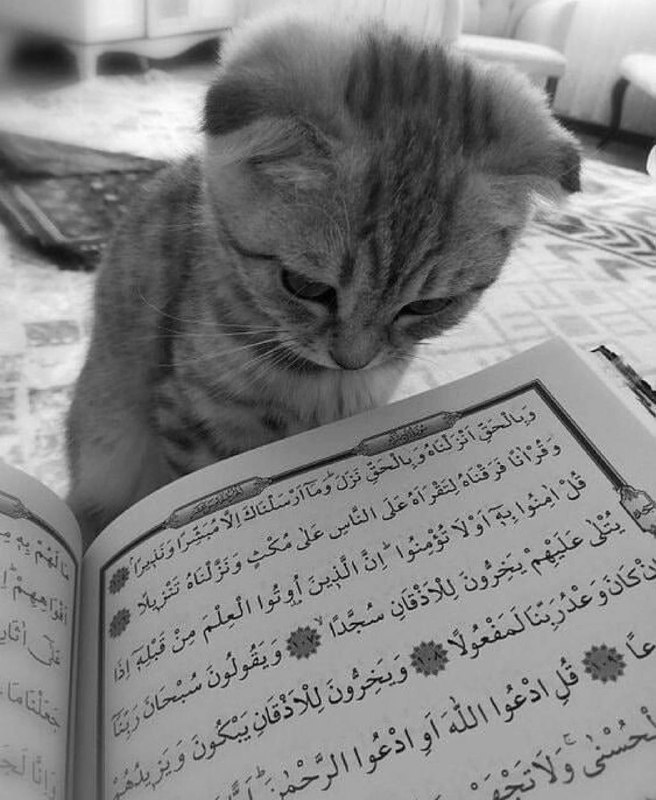 وَبِالْحَقِّ اَنْزَلْنَاهُ وَبِالْحَقِّ نَزَلَۜ وَمَٓا اَرْسَلْنَاكَ اِلَّا مُبَشِّرًا وَنَذ۪يرًاۢ
وَقُرْاٰنًا فَرَقْنَاهُ لِتَقْرَاَهُ عَلَى النَّاسِ عَلٰى مُكْثٍ وَنَزَّلْنَاهُ تَنْز۪يلًا
قُلْ اٰمِنُوا بِه۪ٓ اَوْ لَا تُؤْمِنُواۜ اِنَّ الَّذ۪ينَ اُوتُوا الْعِلْمَ مِنْ قَبْلِه۪ٓ اِذَا
يُتْلٰى عَلَيْهِمْ يَخِرُّونَ لِلْاَذْقَانِ سُجَّدًاۙ وَيَقُولُونَ سُبْحَانَ رَبِّنَٓا
اِنْ كَانَ وَعْدُ رَبِّنَا لَمَفْعُولًا ١٠٨ وَيَخِرُّونَ لِلْاَذْقَانِ يَبْكُونَ وَيَز۪يدُهُمْ
عًا ١٠٩ قُلِ ادْعُوا اللّٰهَ اَوِ ادْعُوا الرَّحْمٰنَۜ
لْحُسْنٰىۚ وَلَا تَجْهَرْ
مَا لَهُمْ بِه۪
اَفْوَاهِهِمْۜ
عَلٰٓى
جَعَلْنَا مَا
وَاِنَّا